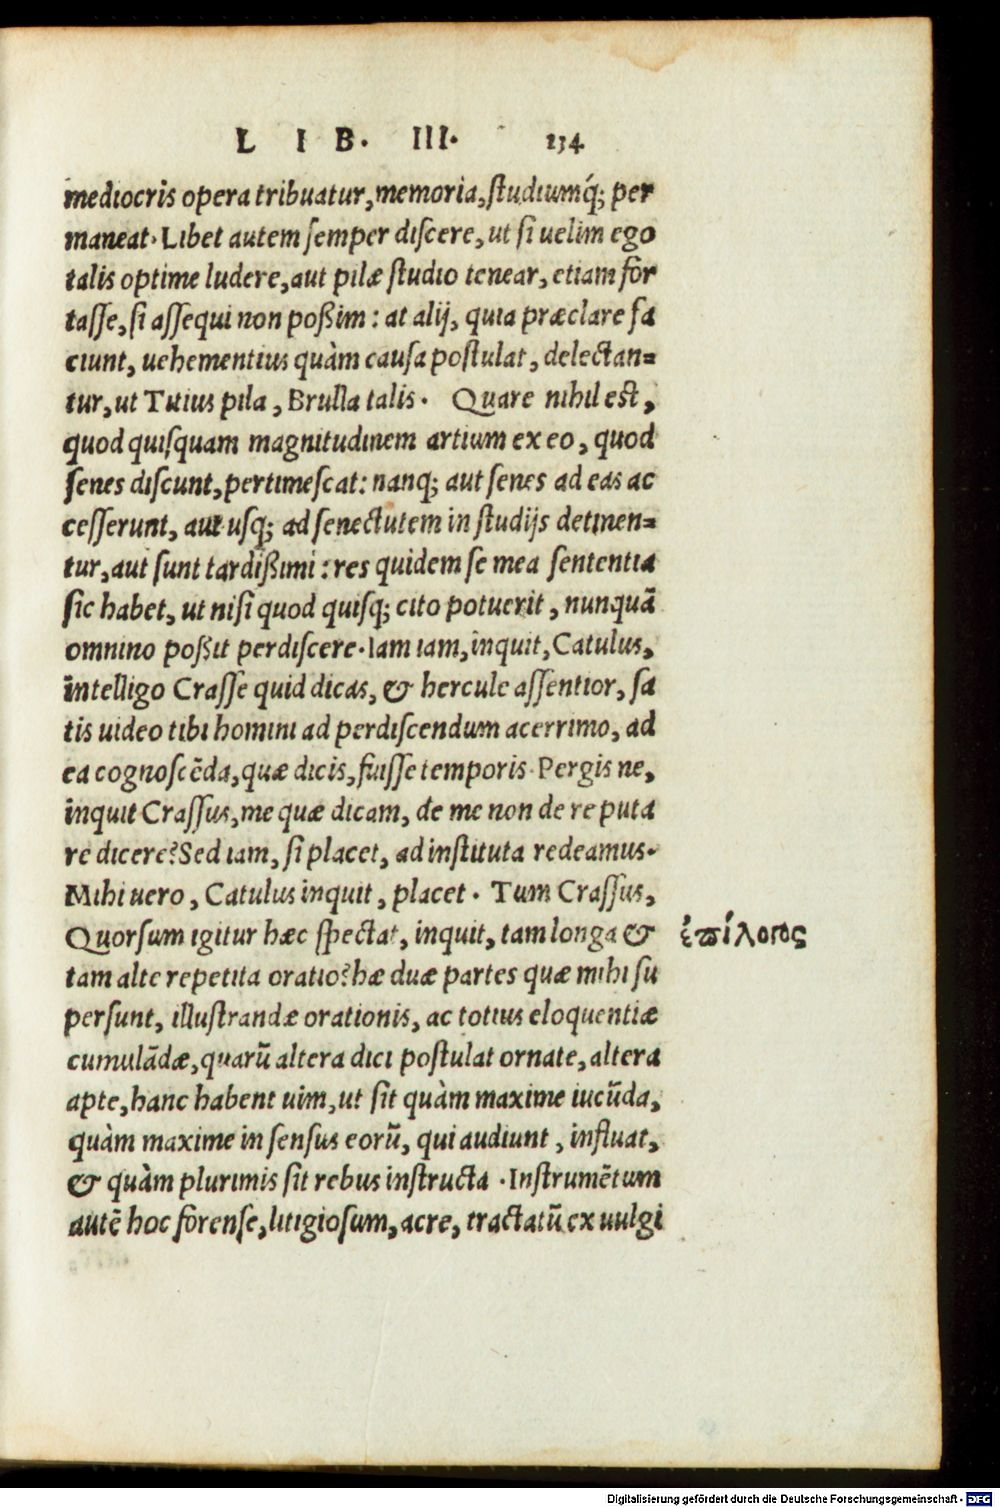 LIB. III. 134
mediocris opera tribuatur, memoria, ſtudiumq́; per
maneat. Libet autem ſemper diſcere, ut ſi uelim ego
talis optime ludere, aut pilæ ſtudio tenear, etiam for
taſſe, ſi aſſequi non poßim: at alij, quia præclare fa
ciunt, uehementius quàm cauſa poſtulat, delectan=
tur, ut Titius pila, Brulla talis. Quare nihil eſt,
quod quiſquam magnitudinem artium ex eo, quod
ſenes diſcunt, pertimeſcat: nanq; aut ſenes ad eas ac
ceſſerunt, aut uſq; ad ſenectutem in ſtudijs detinen=
tur, aut ſunt tardißimi: res quidem ſe mea ſententia
ſic habet, ut niſi quod quiſq; cito potuerit, nunquã
omnino poßit perdiſcere. Iam iam, inquit, Catulus,
intelligo Craſſe quid dicas, & hercule aſſentior, ſa
tis uideo tibi homini ad perdiſcendum acerrimo, ad
ea cognoſcẽda, quæ dicis, fuiſſe temporis. Pergis ne,
inquit Craſſus, me quæ dicam, de me non de re puta
re dicere? Sed iam, ſi placet, ad inſtituta redeamus.
Mihi uero, Catulus inquit, placet. Tum Craſſus,
Quorſum igitur hæc ſpectat, inquit, tam longa &
ἐπίλογος
tam alte repetita oratio? hæ duæ partes quæ mihi ſu
perſunt, illuſtrandæ orationis, ac totius eloquentiæ
cumulãdæ, quarũ altera dici poſtulat ornate, altera
apte, hanc habent uim, ut ſit quàm maxime iucũda,
quàm maxime in ſenſus eorũ, qui audiunt, influat,
& quàm plurimis ſit rebus inſtructa. Inſtrumẽtum
autẽ hoc forenſe, litigioſum, acre, tractatũ ex uulgi
Digitalisierung gefördert durch die Deutsche Forschungsgemeinschaft - DFG